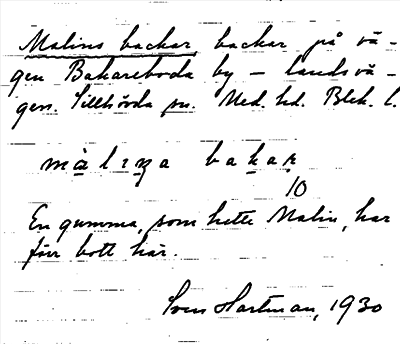 Malins backar, backar på vä-
gen Bakareboda by - landsvä-
gen. Sillhövda sn. Med. hd. Blek. l.
màlıṇa bakaṛ
10
En gumma, som hette Malin, har
förr bott här.
Sven Hartman, 1930